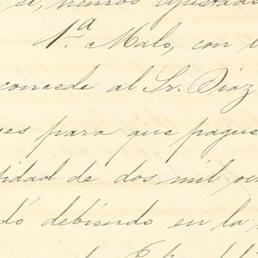 sí, hemos ajustado
1.ª Malo, con l
concede al Sr. Diaz
es para que pague
tidad de dos mil, oc
dó debiendo en la